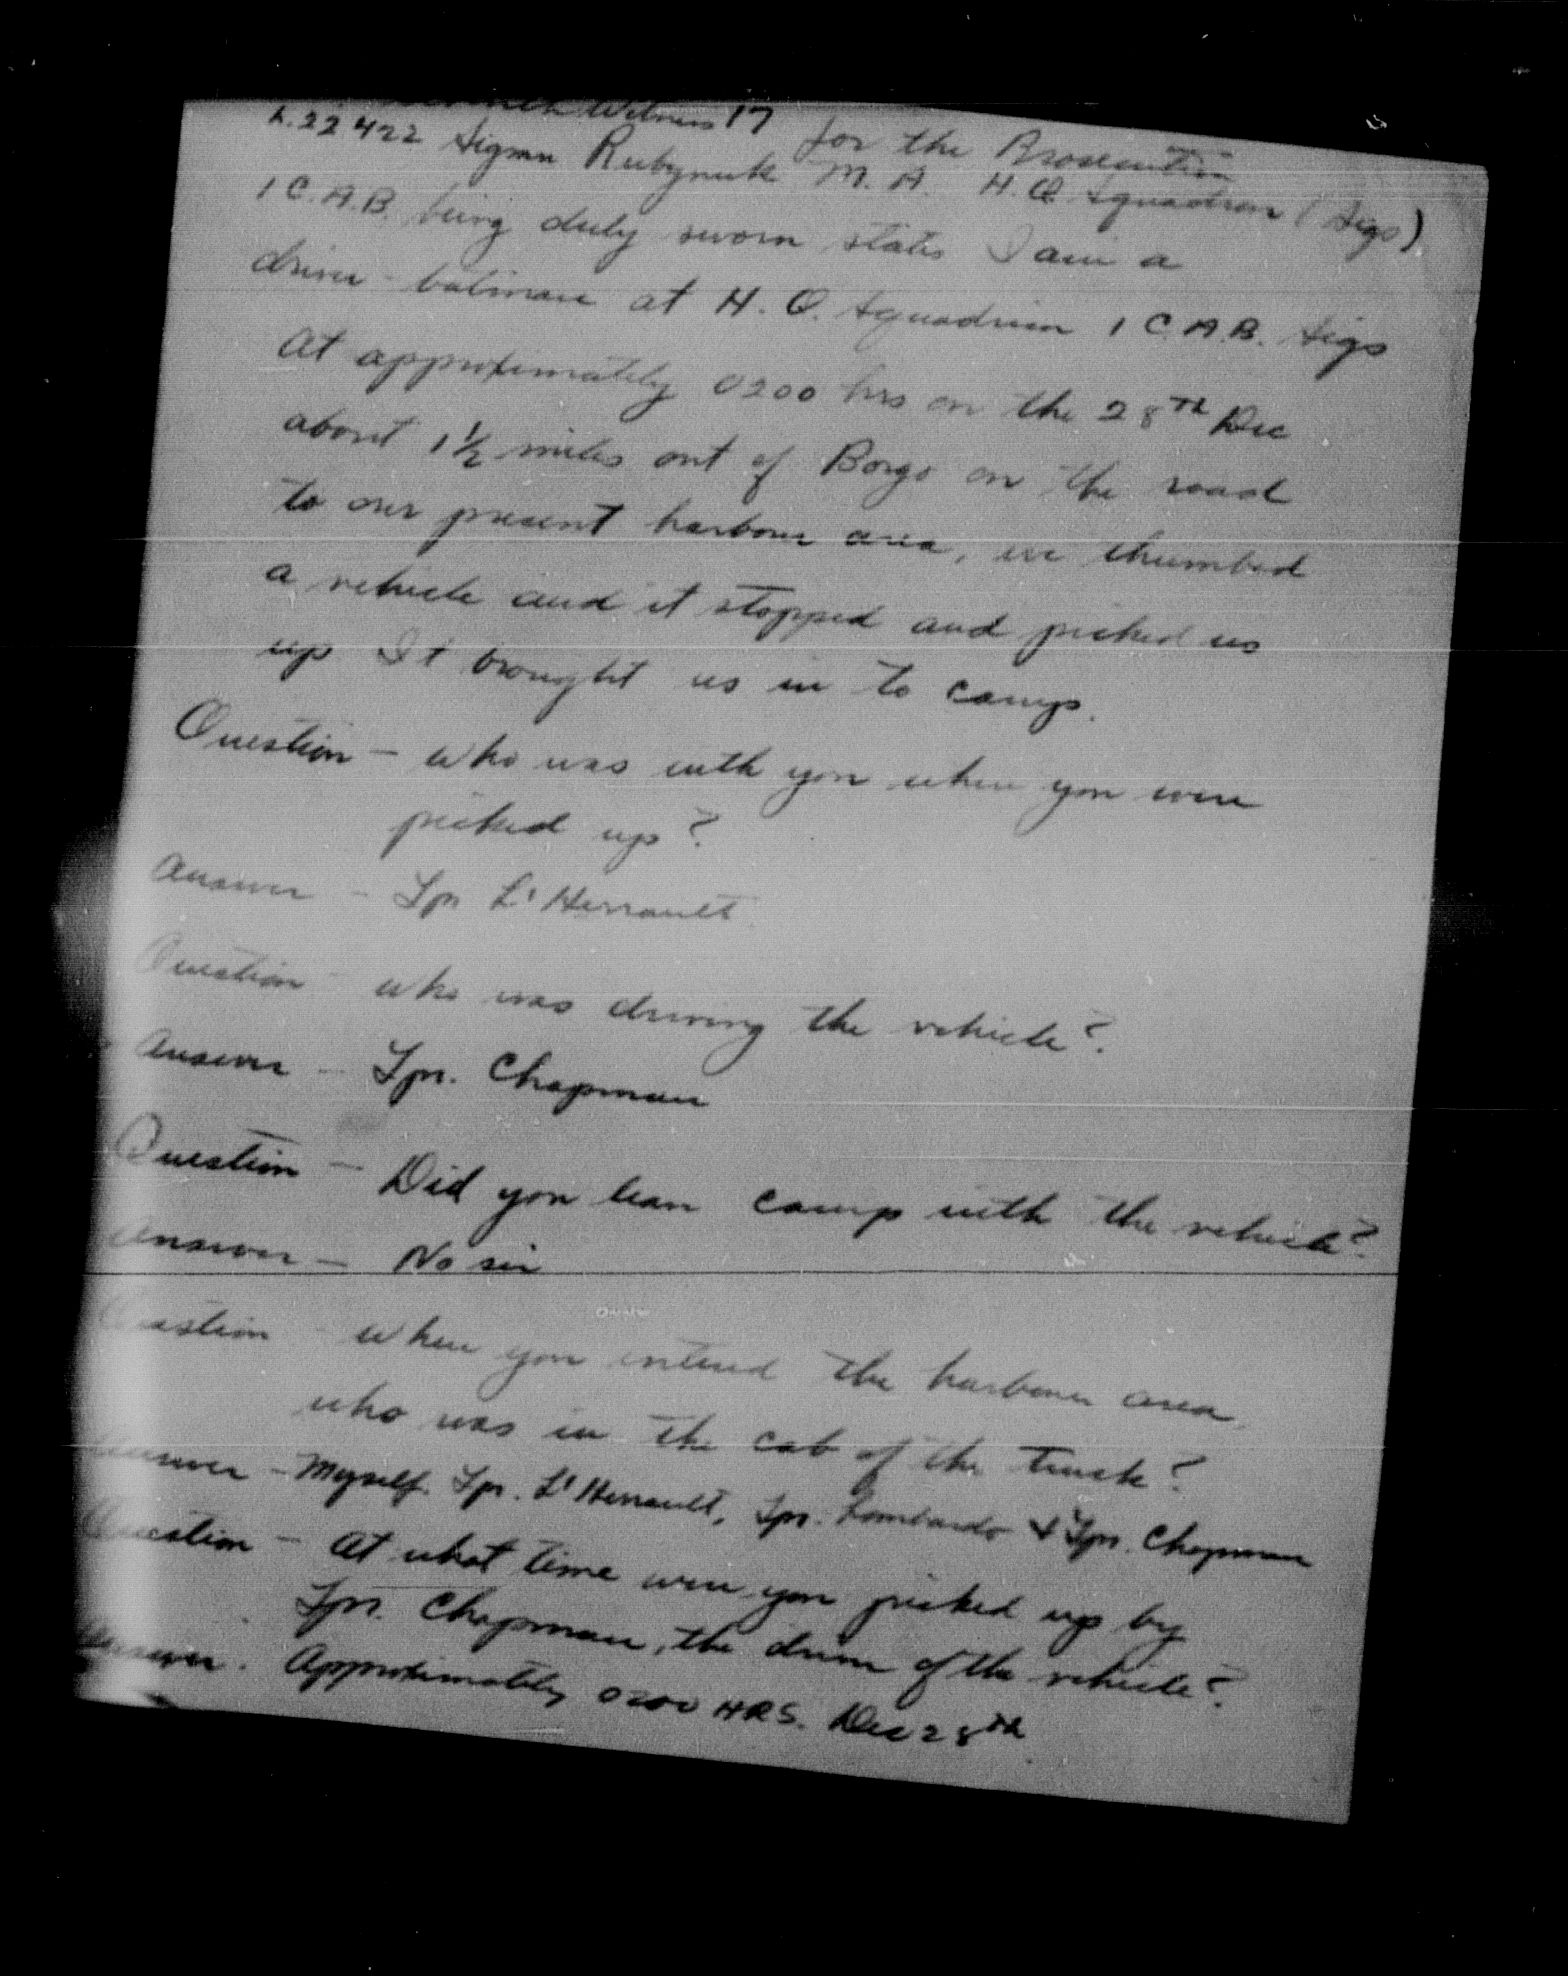 Witness 17 for the Prosecution
L.22422 Sigmn Rubynuk M. A. H.Q. Squadron (Sigs)
1 C.A.B. being duly sworn states I am a
driver-batman at H.Q. Squadron 1 C.A.B. Sigs
At approximately 0200 hrs on the 28TH Dec
about 1½ miles out of Borgo on the road
to our present harbour area, we thumbed
a vehicle and it stopped and picked us
up It brought us in to camp.
Question - who was with you when you were
picked up?
Answer - Tpr L'Herrault
Question - who was driving the vehicle?
Answer - Tpr. Chapman
Question - Did you leave camp with the vehicle?
Answer - No sir
Question - when you entered the harbour area
who was in the cab of the truck?
Answer - Myself. Tpr. L'Herrault, Tpr. Lombardo & Tpr. Chapman
Question - At what time were you picked up by
Tpr. Chapman, the driver of the vehicle?
Answer. Approximately 0200 HRS. Dec 28th